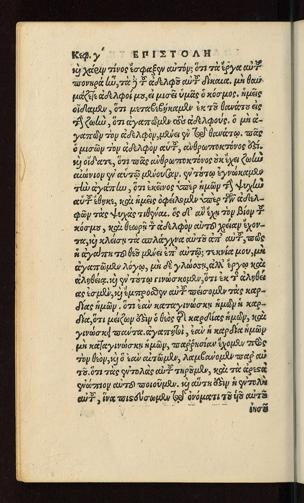 Κεφ. γ' ΕΠΙΣΤΟΛΗ
καὶ χάριν τίνος ἔσφαξεν αὐτόν; ὅτι τὰ ἔργα αὐτοῦ
πονηρὰ ἦν, τὰ δὲ τοῦ ἀδελφοῦ αὐτοῦ δίκαια. μὴ θαυ
μάζετε ἀδελφοί μου, εἰ μισεῖ ὑμᾶς ὁ κόσμος. ἡμεῖς
οἴδαμεν, ὅτι μεταβεβήκαμεν ἐκ τοῦ θανάτου εἰς
τὴν ζωὴν, ὅτι ἀγαπῶμεν τοὺς ἀδελφούς. ὁ μὴ ἀ
γαπῶν τὸν ἀδελφὸν, μένει ἐν τῷ θανάτῳ. πᾶς
ὁ μισῶν τὸν ἀδελφὸν αὐτοῦ, ἀνθρωποκτόνος ἐστί.
καὶ οἴδατε, ὅτι πᾶς ἀνθρωποκτόνος οὐκ ἔχει ζωὴν
αἰώνιον ἐν αὐτῷ μένουσαν. ἐν τούτῳ ἐγνώκαμεν
τὴν ἀγάπην, ὅτι ἐκεῖνος ὑπὲρ ἡμῶν τὴν ψυχὴν
αὐτοῦ ἔθηκε, καὶ ἡμεῖς ὀφείλομεν ὑπὲρ τῶν ἀδελ
φῶν τὰς ψυχὰς τιθέναι. ὃς δ' ἂν ἔχῃ τὸν βίον τοῦ
κόσμου, καὶ θεωρῇ τὸν ἀδελφὸν αὐτοῦ χρείαν ἔχον
τα, καὶ κλείσῃ τὰ σπλάγχνα αὐτοῦ ἀπ' αὐτοῦ, πῶς
ἡ ἀγάπη τοῦ θεοῦ μένει ἐν αὐτῷ; τεκνία μου, μὴ
ἀγαπῶμεν λόγῳ, μηδὲ γλώσσῃ, ἀλλ' ἔργῳ καὶ
ἀληθείᾳ. καὶ ἐν τούτῳ γινώσκομεν, ὅτι ἐκ τῆς ἀληθεί
ας ἐσμὲν, καὶ ἔμπροσθεν αὐτοῦ πείσομεν τὰς καρ
δίας ἡμῶν. ὅτι ἐὰν καταγινώσκῃ ἡμῶν ἡ καρ
δία, ὅτι μείζων ἐστὶν ὁ θεὸς τῆς καρδίας ἡμῶν, καὶ
γινώσκει πάντα. ἀγαπητοὶ, ἐὰν ἡ καρδία ἡμῶν
μὴ καταγινώσκῃ ἡμῶν, παρρησίαν ἔχομεν πρὸς
τὸν θεὸν, καὶ ὃ ἐὰν αἰτῶμεν, λαμβάνομεν παρ' αὐ
τοῦ. ὅτι τὰς ἐντολὰς αὐτοῦ τηροῦμεν, καὶ τὰ ἀρεστὰ
ἐνώπιον αὐτοῦ ποιοῦμεν. καὶ αὕτη ἐστὶν ἡ ἐντολὴ
αὐτοῦ, ἵνα πιστεύσωμεν τῷ ὀνόματι τοῦ υἱοῦ αὐτοῦ
ἰησοῦ